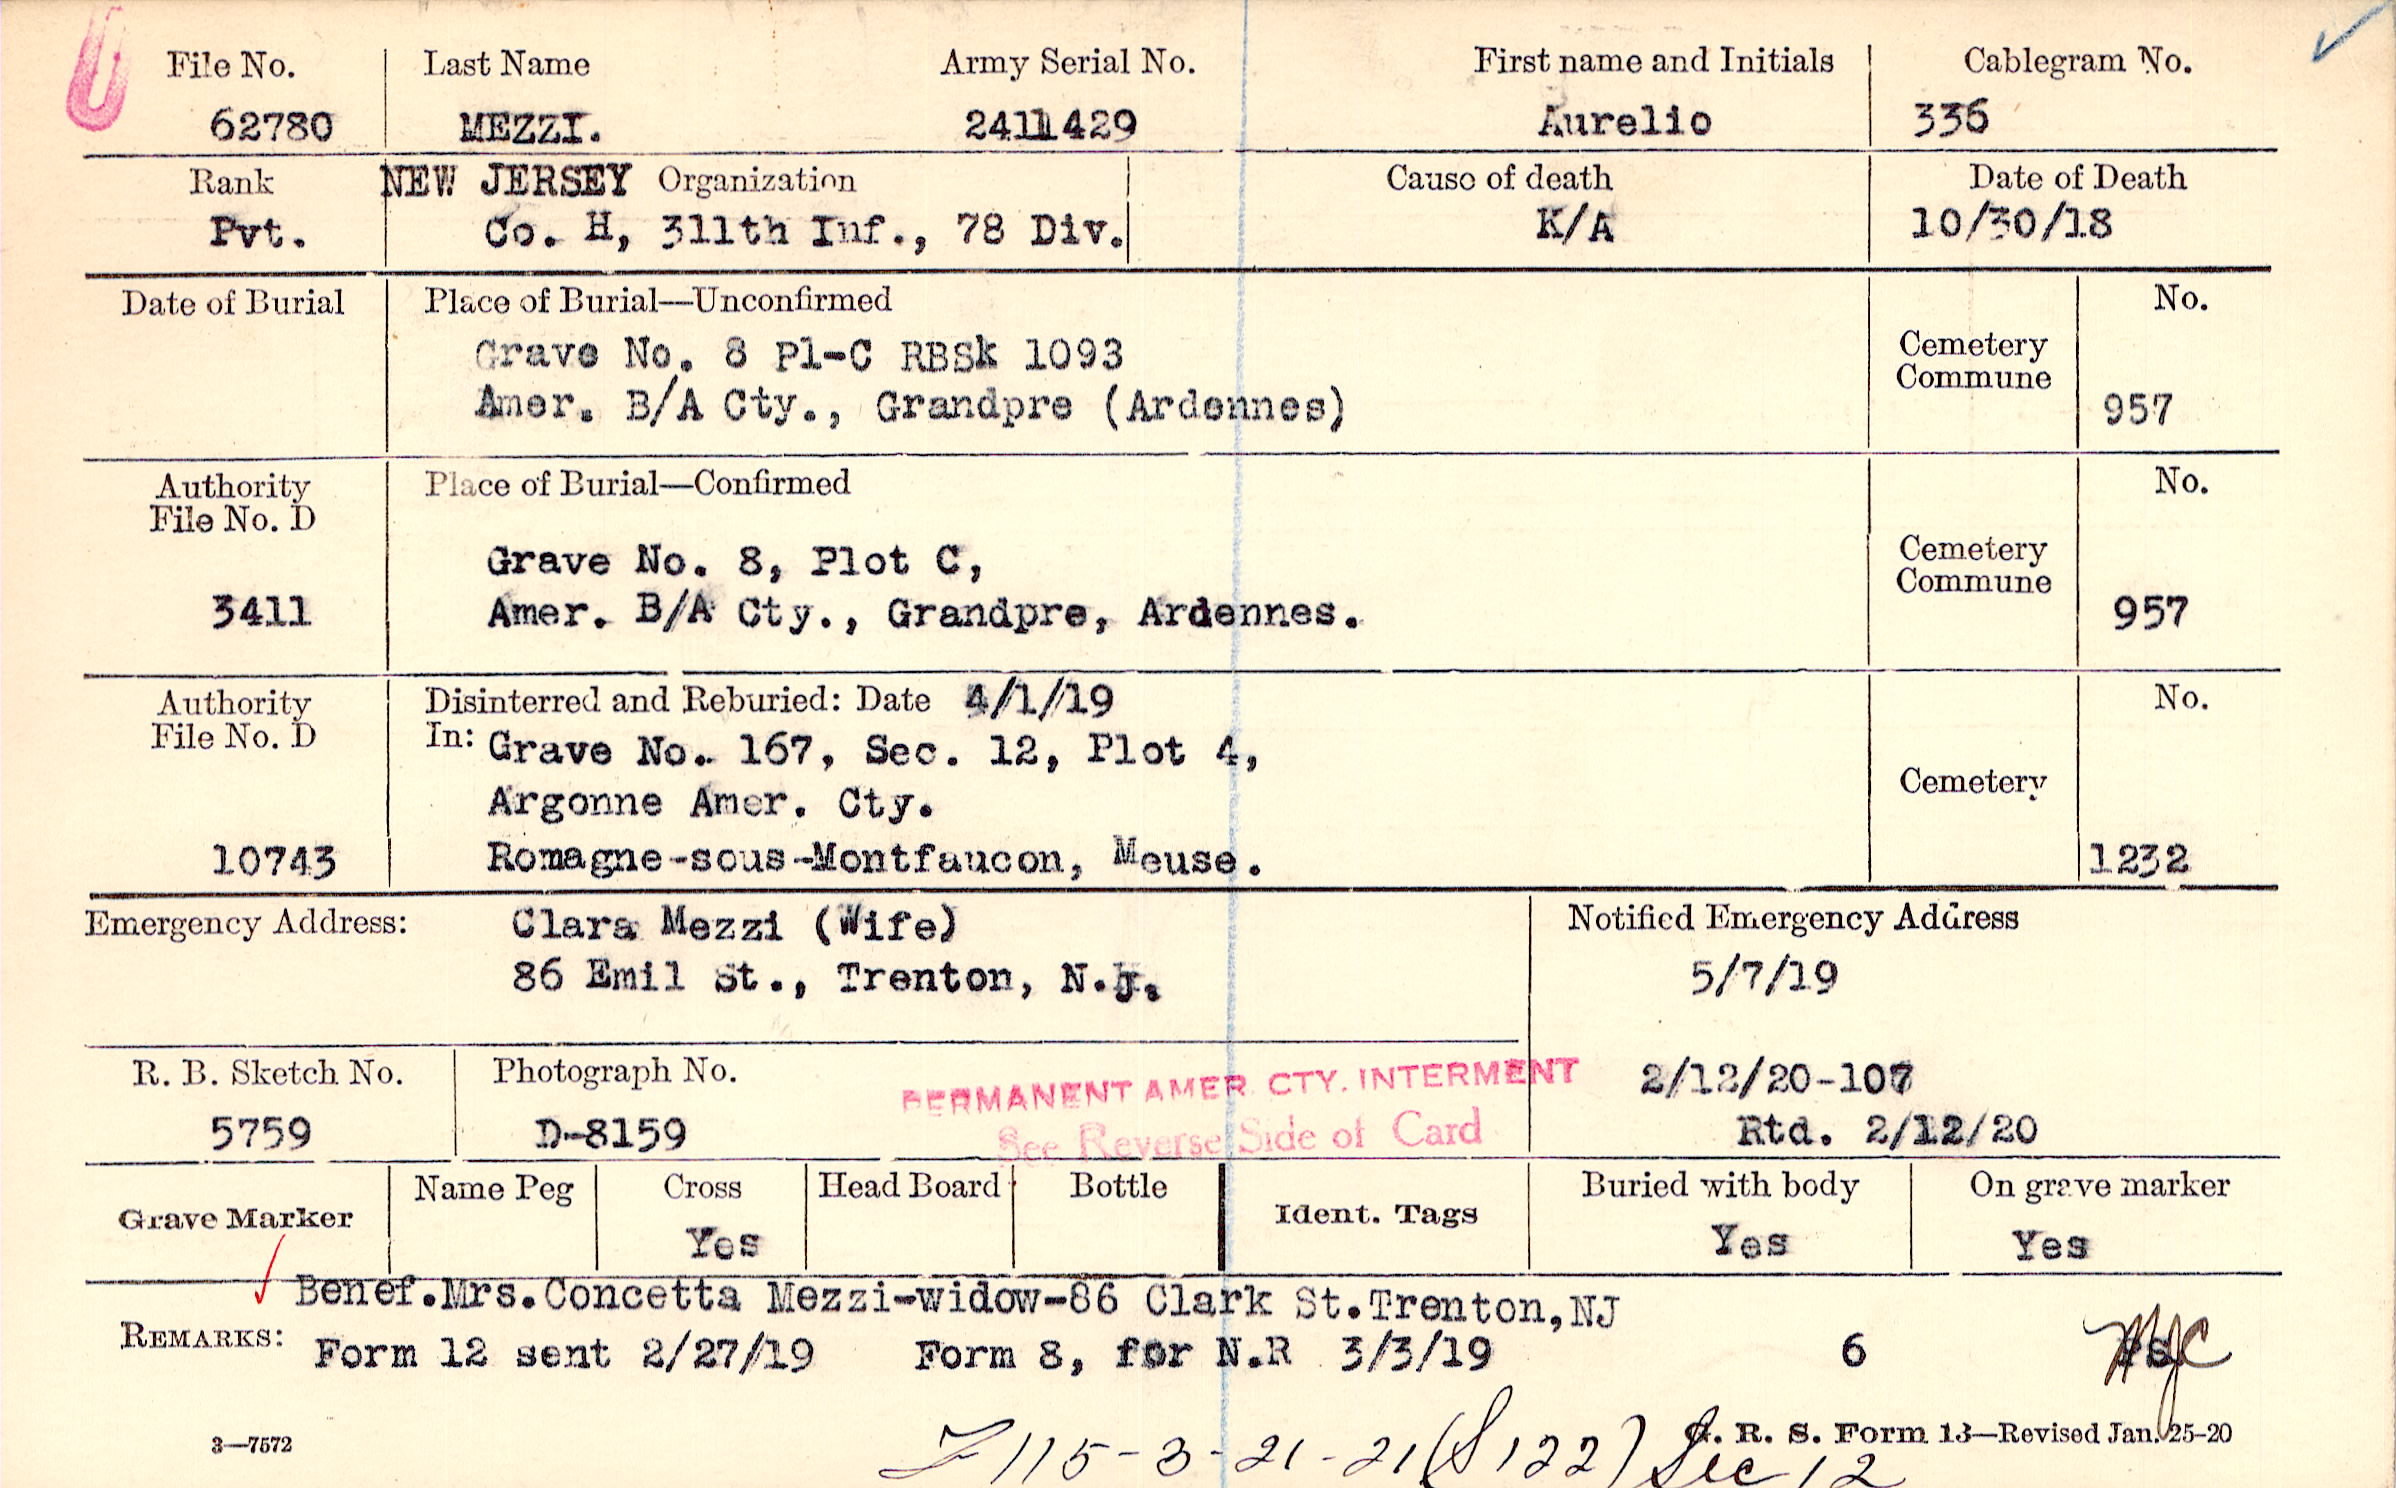 File No. Last Name Army Serial No. First name and Initials Cablegram No.
62780 MEZZI. 2411429 Aurelio 336
Rank NEW JERSEY Organization Cause of death Date of Death
Pvt. Co. H, 311th Inf., 78 Div. K/A 10/30/18
Date of Burial Place of Burial—Unconfirmed No.
Grave No. 8 Pl-C RBSk 1093 Cemetery
Commune
Amer. B/A Cty., Grandpre (Ardennes) 957
Authority Place of Burial—Confirmed No.
File No. D
Grave No. 8, Plot C, Cemetery
Commune
3411 Amer. B/A Cty., Grandpre, Ardennes. 957
Authority Disinterred and Reburied: Date 4/1/19 No.
File No. D In: Grave No. 167, Sec. 12, Plot 4,
Argonne Amer. Cty. Cemetery
10743 Romagne-sous-Montfaucon, Meuse. 1232
Emergency Address: Clara Mezzi (Wife) Notified Emergency Address
86 Emil St., Trenton, N.J. 5/7/19
R. B. Sketch No. Photograph No. PERMANENT AMER CTY. INTERMENT 2/12/20-107
5759 D-8159 See Reverse Side of Card Rtd. 2/12/20
Grave Marker Name Peg Cross Head Board Bottle Ident. Tags Buried with body On grave marker
Yes Yes Yes
Benef.Mrs.Concetta Mezzi-widow-86 Clark St.Trenton,NJ
REMARKS: Form 12 sent 2/27/19 Form 8, for N.R 3/3/19 6
3—7572 G. R. S. Form 13—Revised Jan. 25-20
115-3-21-21 (S122) Sec 12